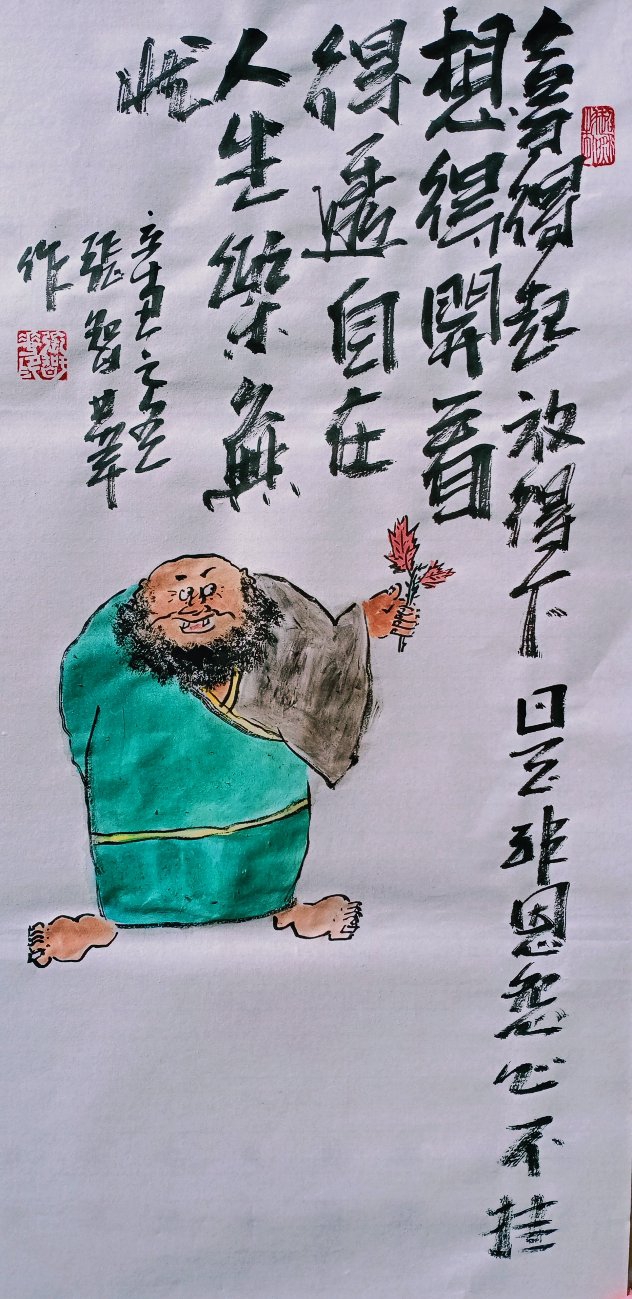 拿得起放得下是非恩怨心不挂
想得開看
得透自在
人生樂無
忧
辛丑之
張智華
作